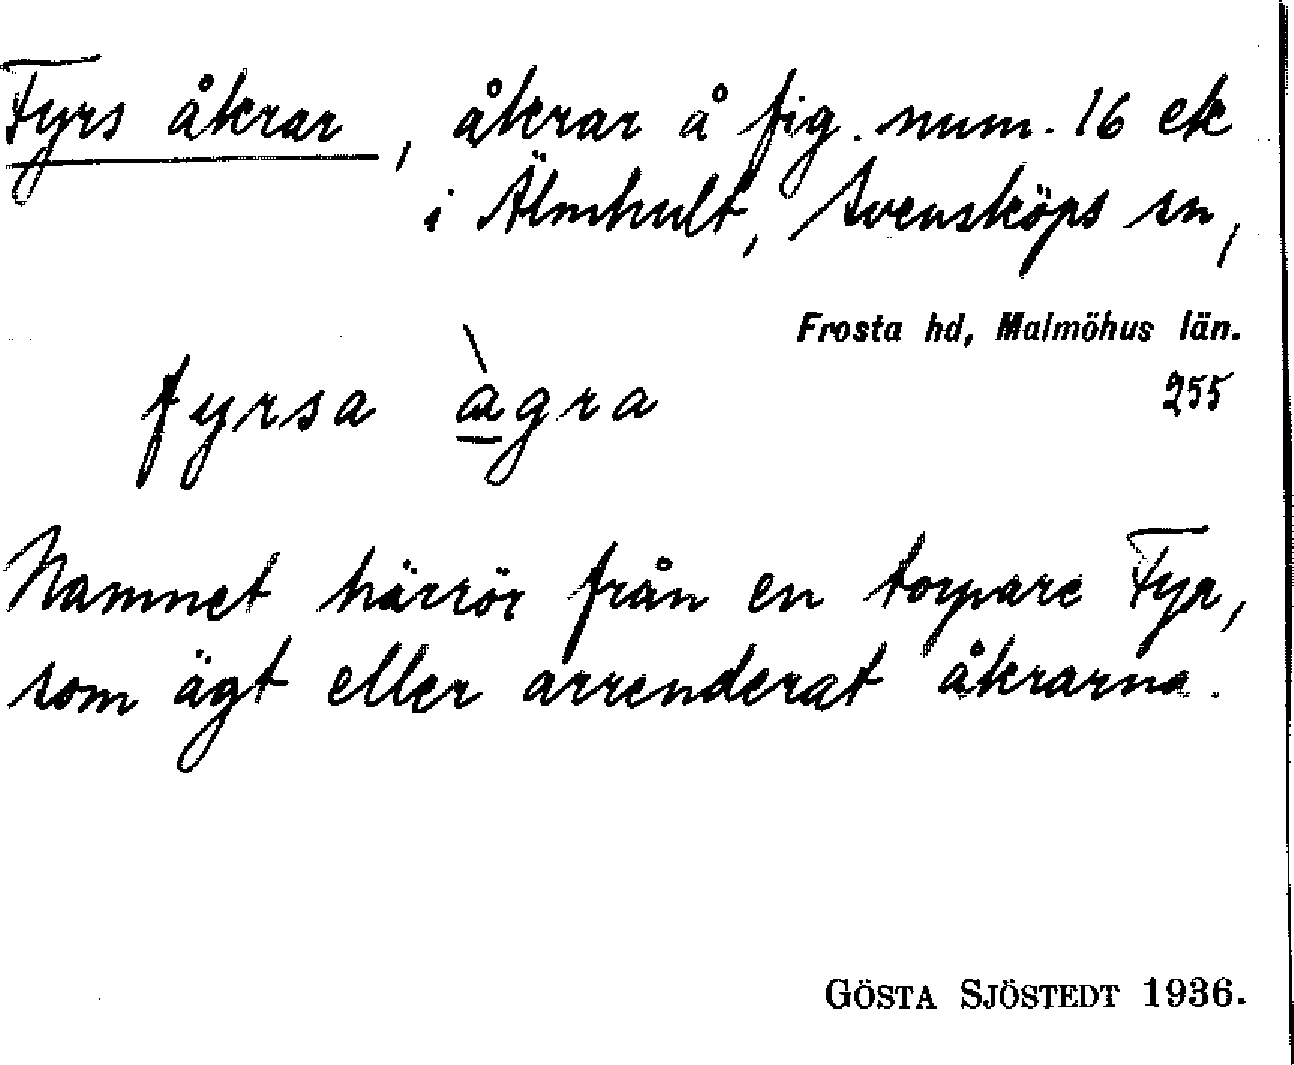 Fyrs åkrar, åkrar å fig. num. 16 ek
i Älmhult, Svensköps sn,
Frosta hd, Malmöhus län.
fyrsa àgra 255
Namnet härrör från en torpare Fyr,
som ägt eller arrenderat åkrarna.
GÖSTA SJÖSTEDT 1936.